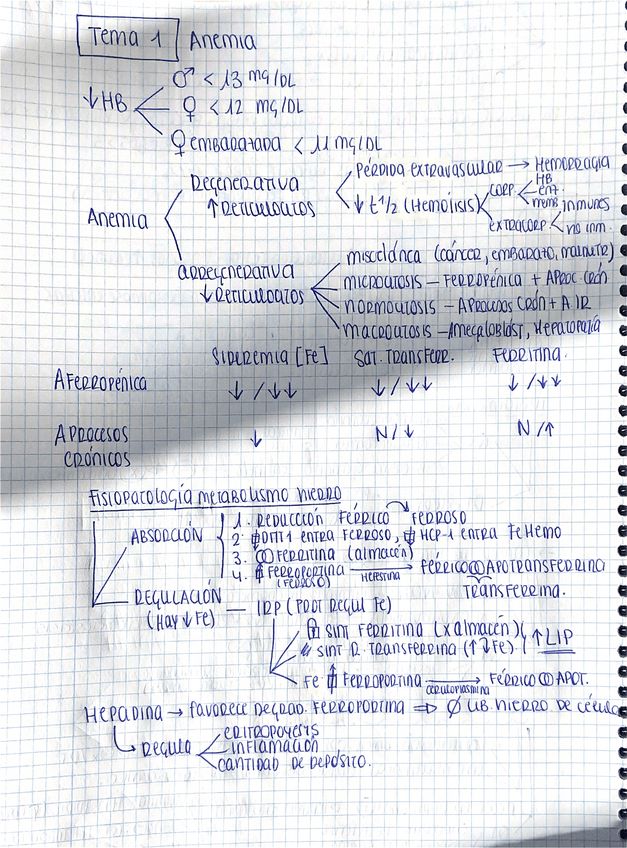 Tema 1 Anemia
♂ < 13 mg/DL
↓HB ♀ < 12 mg/DL
♀ embarazada < 11 mg/DL
Anemia
Regenerativa ↑ Reticulocitos
Pérdida extravascular → Hemorragia
↓ t 1/2 (Hemólisis)
Corp. HB
enz.
memb
extracorp inmunes
no inm.
arregenerativa ↓ Reticulocitos
miscelánea (cáncer, embarazo, malnutr)
microcitosis – Ferropénica + A proc crón
normocitosis – A procesos crón + A IR
macrocitosis – A megaloblást, Hepatopatía
Sideremia [Fe] Sat. Transferr. Ferritina.
A Ferropénica ↓/↓↓ ↓/↓↓ ↓/↓↓
A Procesos crónicos ↓ N/↓ N/↑
Fisiopatología metabolismo hierro
ABSORCIÓN
1. Reducción férrico ferroso
2. DMT1 entra ferroso, HCP-1 entra Fe Hemo
3. Ferritina (almacén)
4. Ferroportina (ferroso) → Hefestina férrico apotransferrina
Transferrina.
REGULACIÓN (Hay ↓ Fe) — IRP (prot regul Fe)
sint ferritina (x almacén)
sint R. transferrina (↑↓Fe) ↑ LIP
Fe Ferroportina → ceruloplasmina férrico apot.
Hepcidina → favorece degrad. ferroportina ⇒ Ø lib. hierro de célula
Regula
eritropoyesis
inflamación
cantidad de depósito.